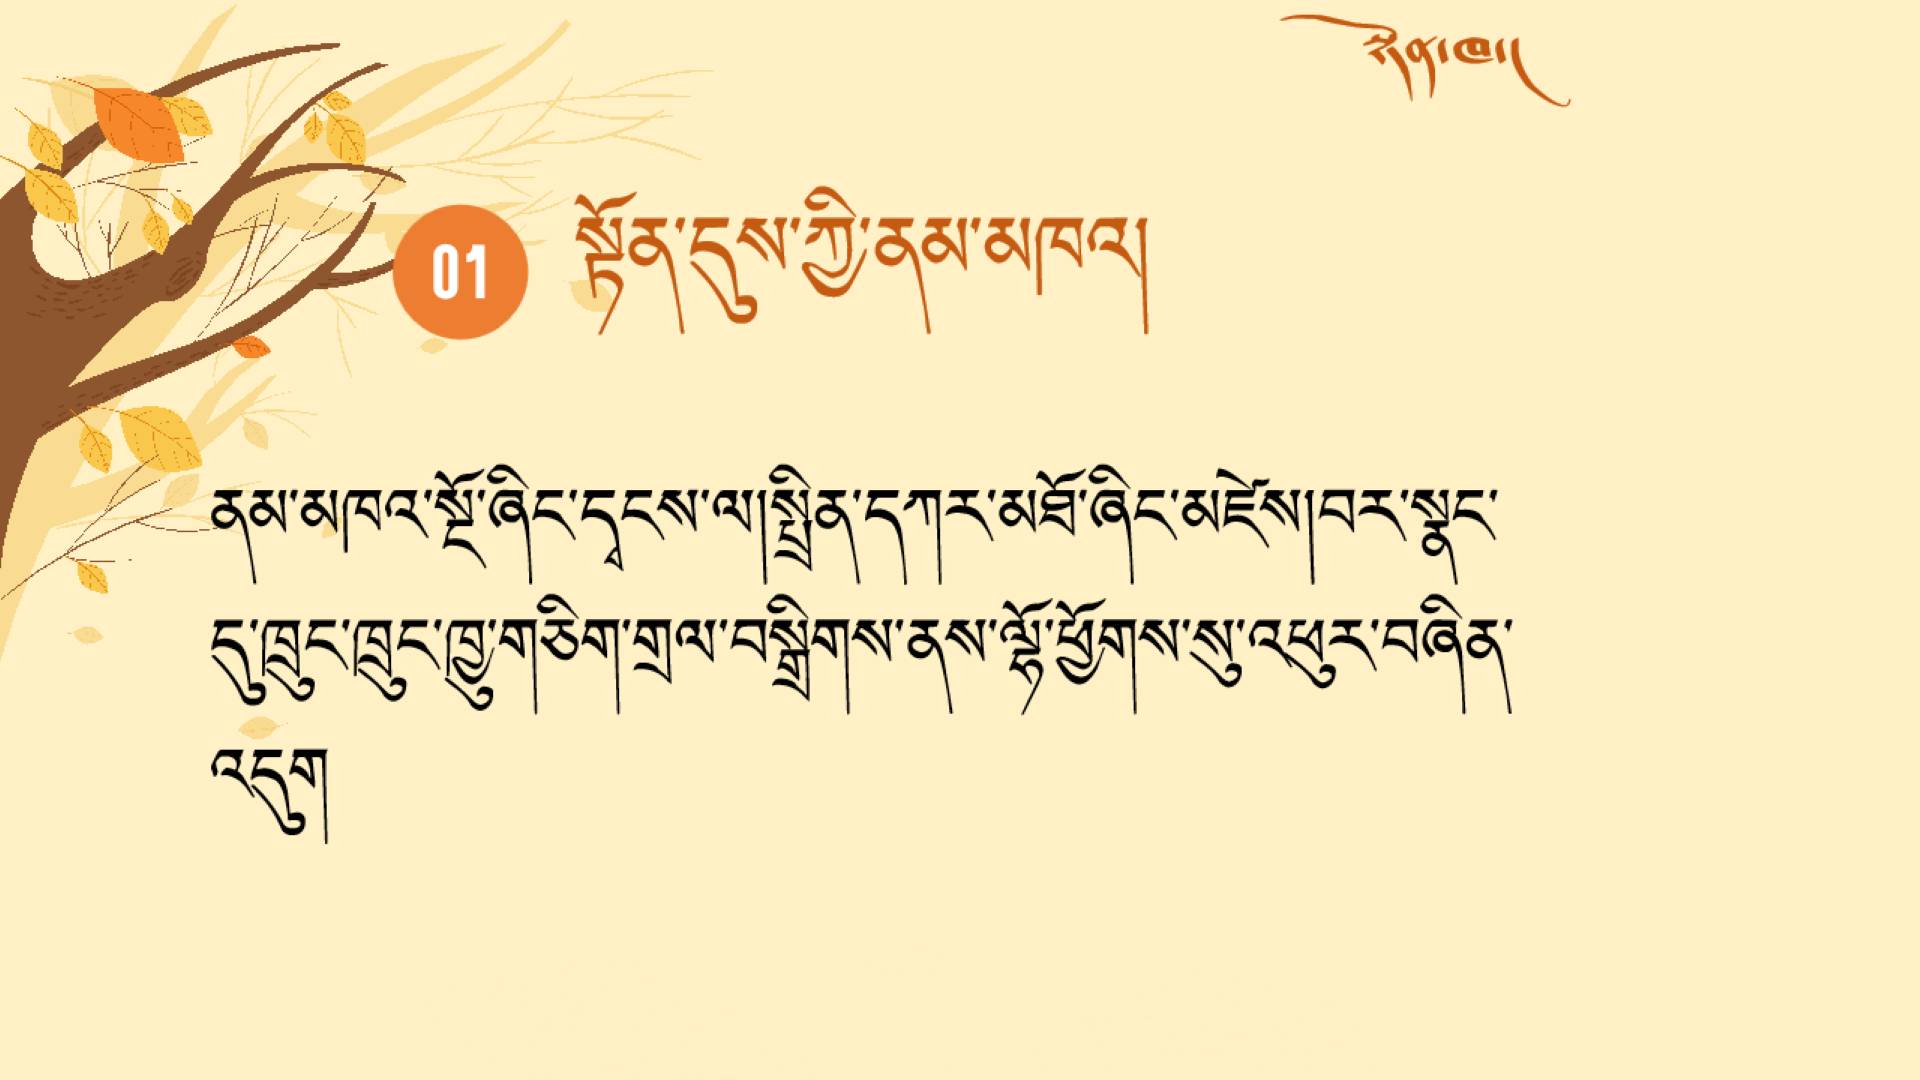 01
སྟོན་དུས་ཀྱི་ནམ་མཁའ།
ནམ་མཁའ་སྔོ་ཞིང་དྭངས་ལ།སྤྲིན་དཀར་མཐོ་ཞིང་མཛེས།བར་སྣང་
དུ་ཁྲུང་ཁྲུང་ཁྱུ་གཅིག་གྲལ་བསྒྲིགས་ནས་ལྷོ་ཕྱོགས་སུ་འཕུར་བཞིན་
འདུག